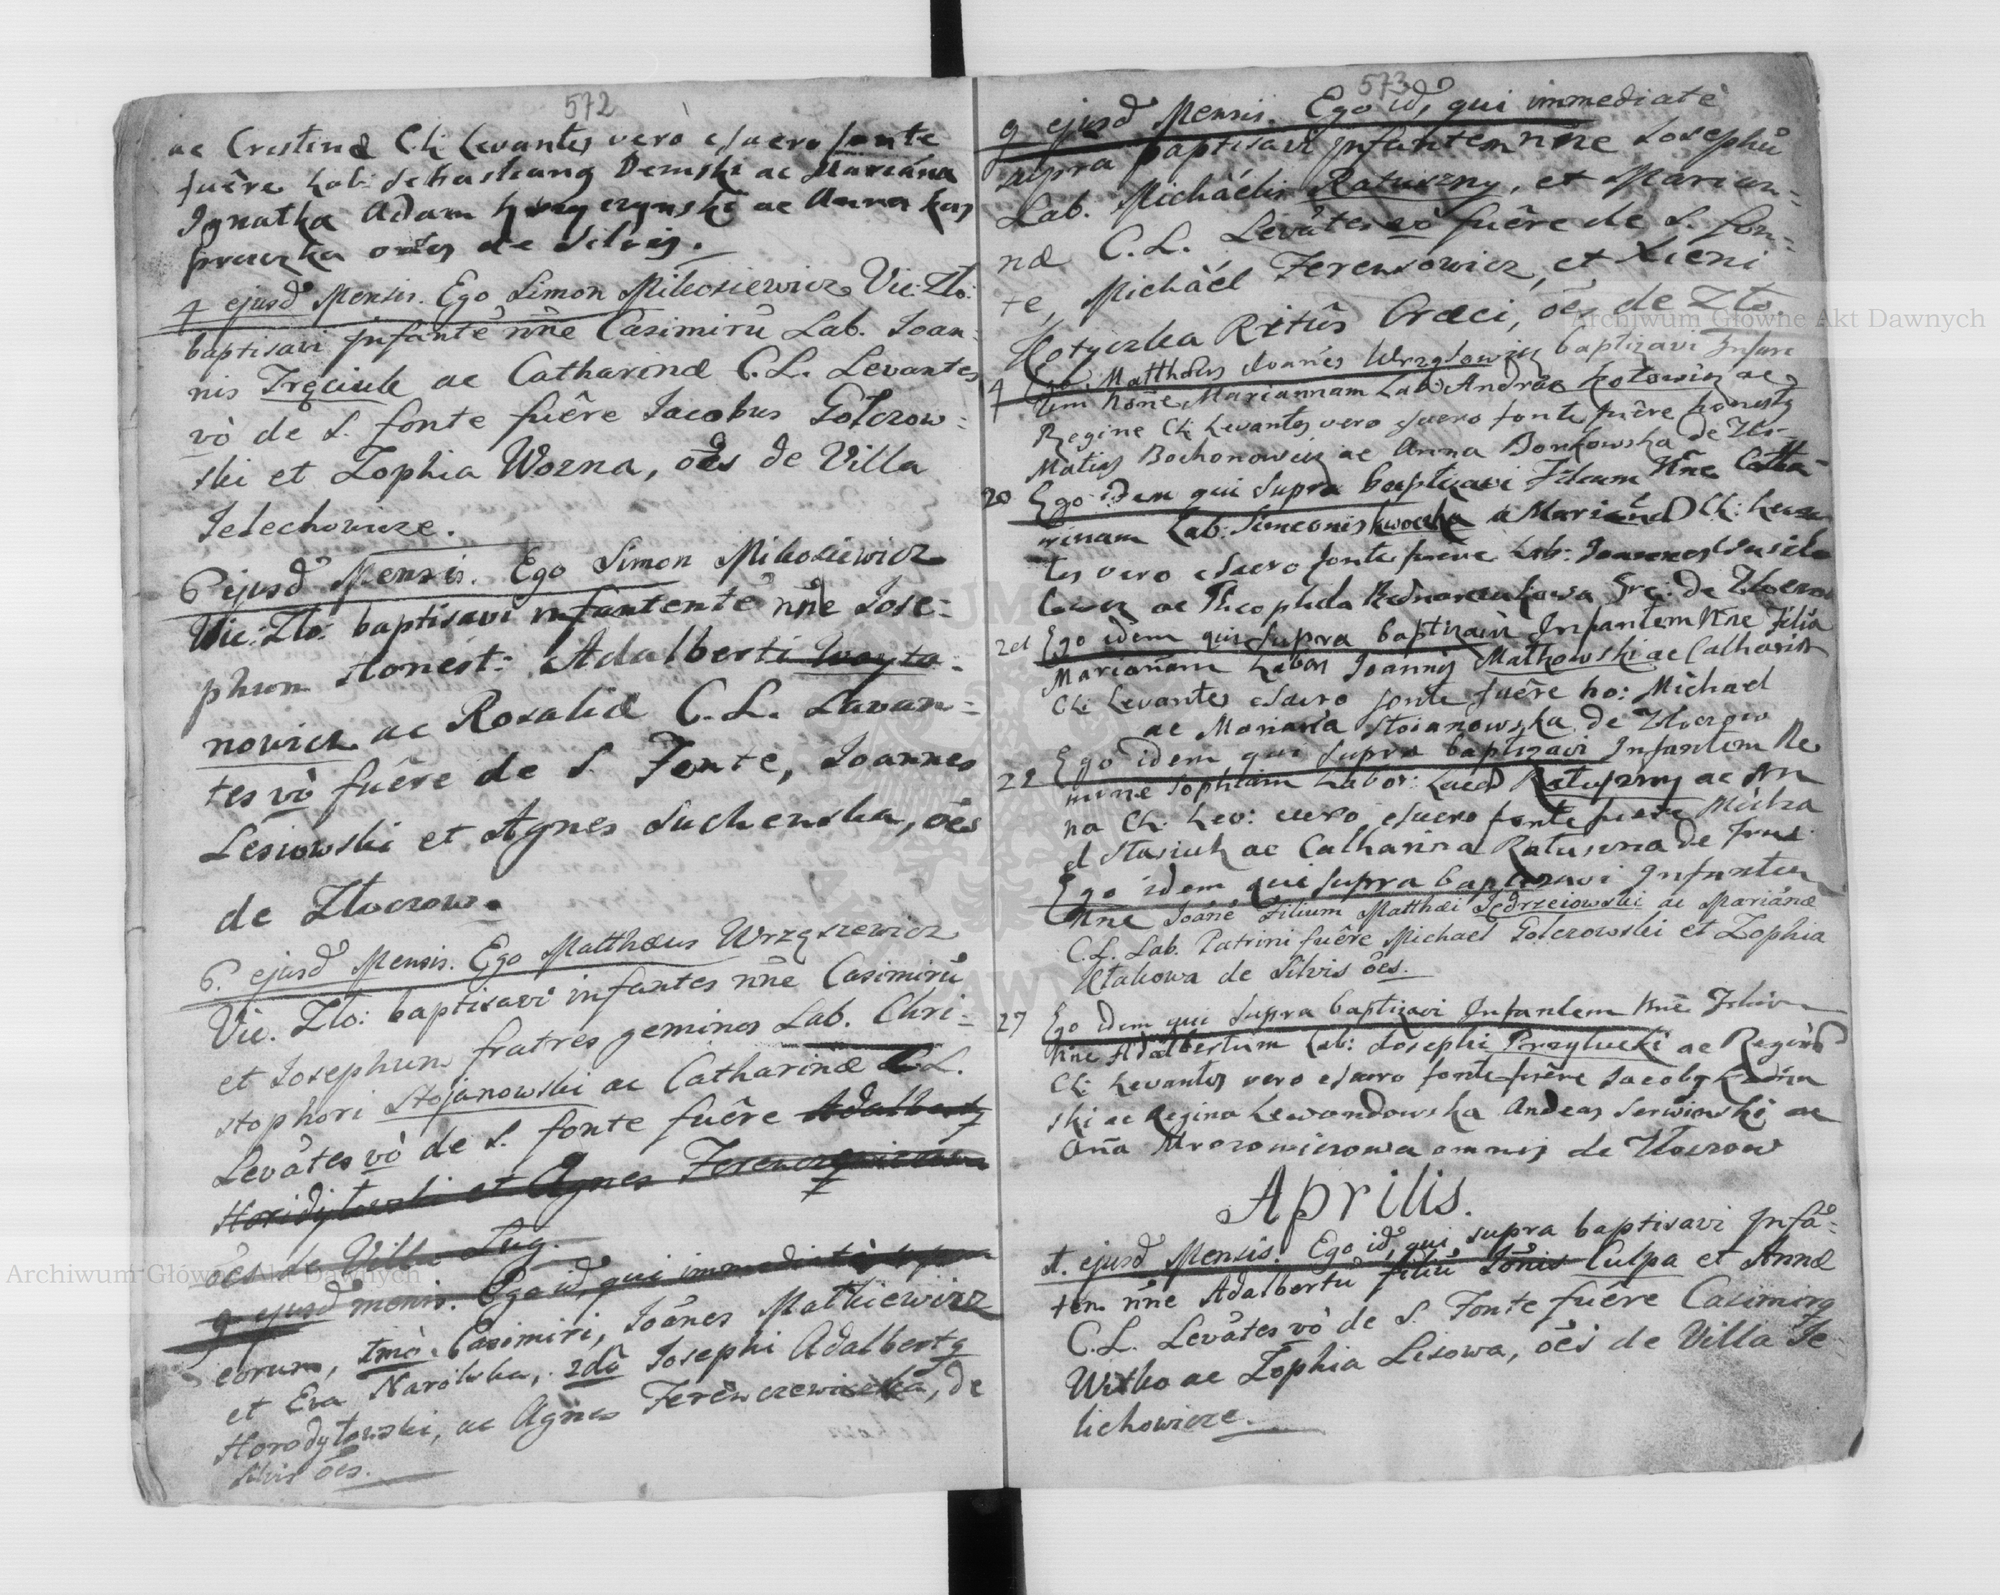 572
ac Cristinæ C: L: Levantes vero e sacro fonte
fuêre Lab: Sebastiang Demski ac Mariána
Ignatka Adam ac Anna Kas
praczka de Silvis.
4 ejusđ Mensis. Ego Simon Mikosiewicz Vic: Zło:
baptisavi Jnfantē nn̄e Casimirū Lab. Joan-
nis Tręciak ac Catharinæ C. L. Levantes
vò de S. fonte fuêre Jacobus Golczow=
ski et Zophia Wozna, oēs de Villa
Jelechowicze.
6 ejusđ Mensis. Ego Simon Mikosiewicz
Vic: Zło: baptisavi infantentē nn̄e Jose=
phum Honest: Adalberti Woyta=
nowicz ac Rosaliæ C. L. Lavan=
tes vò fuêre de S. Fonte, Joannes
Lesiowski et Agnes Suchenska, oēs
de Złoczow.
6. ejusđ Mensis. Ego Matthæus Wrzęsiewicz
Vic. Zło: baptisavi infantes nn̄e Casimirū
et Josephum fratres geminos Lab. Chri=
stophori Stojanowski ac Catharinæ C. L.
Levātes vò de S. fonte fuêre Adalbertg
Horidyłowski et Agnes
oēs de Villa
9 ejusđ mensis. Ego iđ, qui immediatè supra
eorum, Imò Casimiri, Joānes Mathiewicz
et Eva Narolska, 2dô Josephi Adalbertg
Horodyłowski, ac Agnes Ferenczewiczka, de
Silvis oēs.
573
9 ejusđ Mensis. Ego iđ, qui immediatè
supra baptisavi Jnfantem nn̄e Josephū
Lab. Michaëlis Ratuszny, et Marian=
næ C. L. Levātes vò fuêre de S. fon=
te, Michaël Ferensowicz, et Xieni
Hotyczka Ritûs Græci, oēs de Zło.
4 Ego Matthæus Joannes baptizavi Infan
tem Nom̄e Mariannam Lab: Andreæ Kotowicz ac
Regine C: L: Levantes vero e sacro fonte fuêre honestg
Matias Bochonowicz ac Anna Bonkowska de Zło-
20 Ego idem qui supra baptizavi Filiam Nn̄e Catha
rinam Lab: Simeonis Kwoczka a Mariañæ C: L: Levan
tes vero e sacro fonte fuêre Lab:
ac Theophila Bednarczukowa Grę: de Złoczow
Ego idem qui supra baptizavi Infantem Nn̄e Filia
Mariañam Labor Joannis Małkowski ac Catharin
C: L: Levantes e sacro fonte fuêre ho: Michael
ac Mariaña Stoianowska de Złoczow
22 Ego idem qui supra baptizavi Infantem No
mine Sophiam Labor: Lucæ Ratuszny ac An
na C: L: Lev: vero e sacro fonte fuere Micha
el Stasiuk ac Catharina Ratuszna de
Ego idem qui supra baptizavi Infantem
Nn̄e Joānē Filium Matthæi Jędrzeiowski ac Mariānæ
C. L. Lab. Patrini fuêre Michael Golczowski et Zophia
Ktakowa de Silvis oēs.
27 Ego idem qui supra baptizavi Infantem Nn̄e Filium
Nn̄e Adalbertum Lab: Josephi Przyłucki ac Reginæ
C: L: Levantes vero e sacro fonte fuêre Jacobg
ski ac Regina Lewandowska Andreas Serwinski ac
Añna Mrozowiczowa omnes de Złoczow
Aprilis.
1. ejusđ Mensis. Ego iđ, qui supra baptisavi Jnfā=
tem nn̄e Adalbertū filiū Joānis Culpa et Annæ
C. L. Levātes vò de S. Fonte fuêre Casimirg
Witko ac Zophia Lisowa, oēs de Villa Je=
lichowicze.
Archiwum Główne Akt Dawnych
Archiwum Główne Akt Dawnych